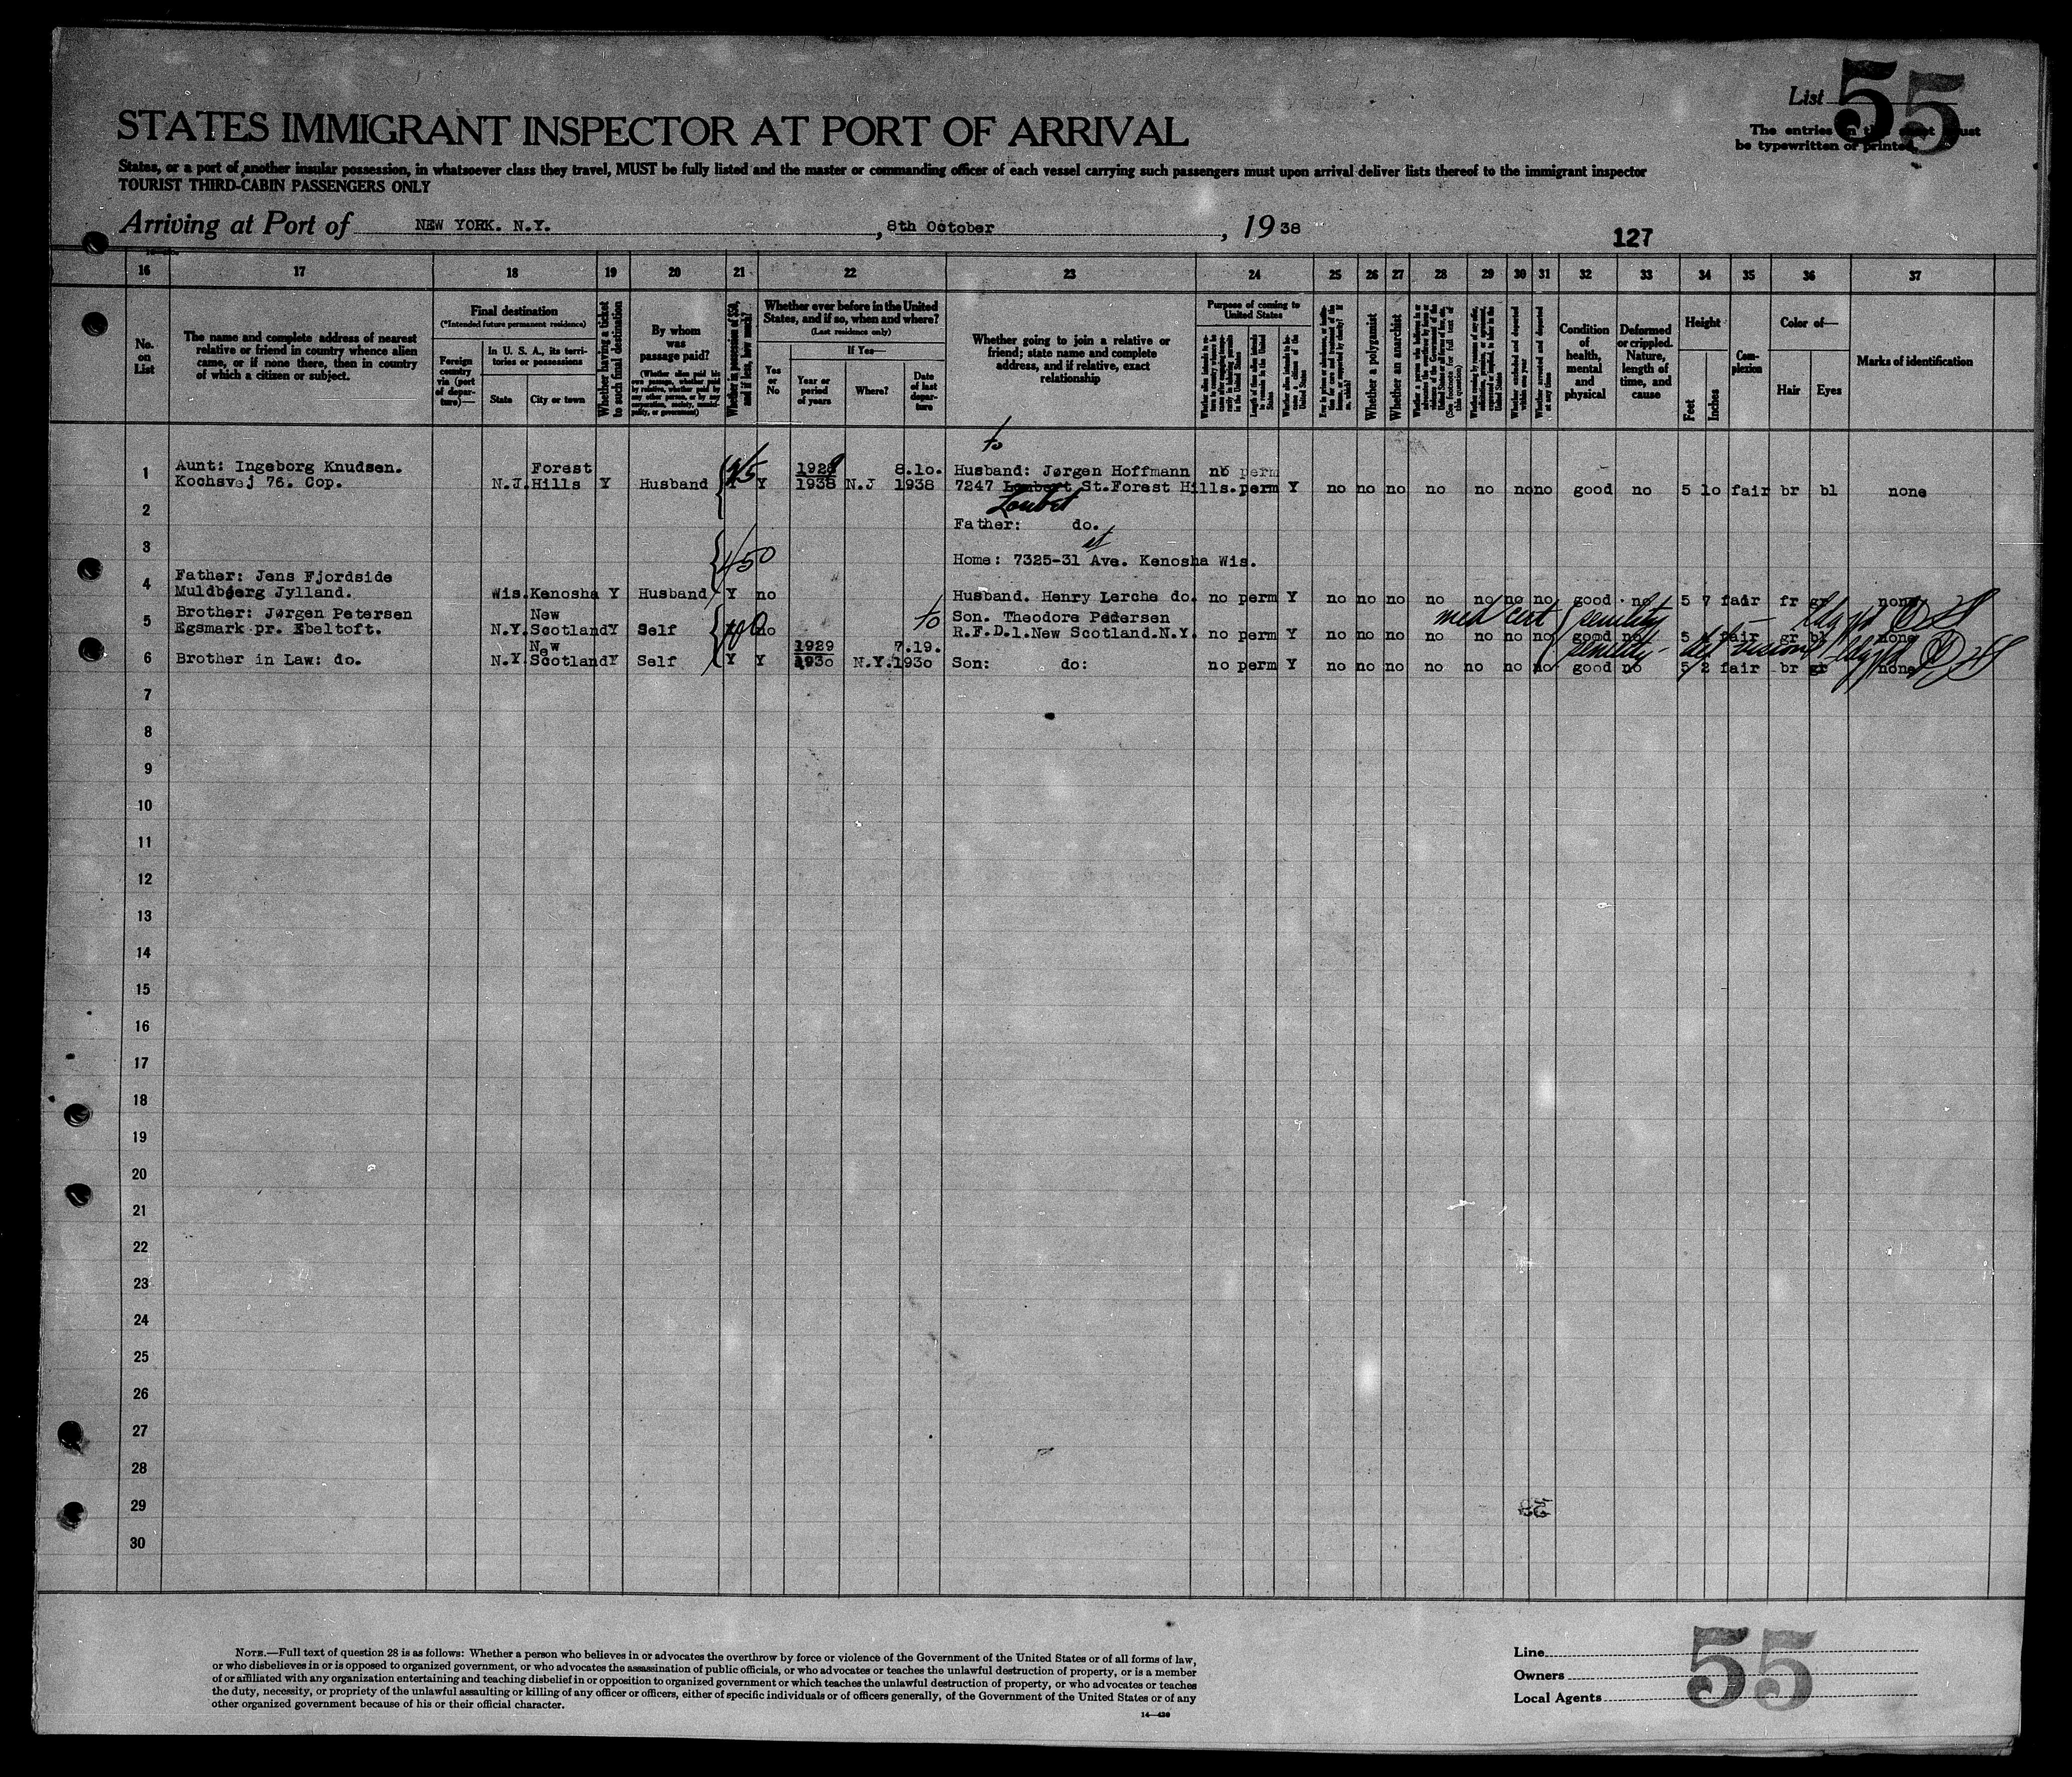 List 55
STATES IMMIGRANT INSPECTOR AT PORT OF ARRIVAL
The entries on this sheet must
be typewritten or printed.
States, or a port of another insular possession, in whatsoever class they travel, MUST be fully listed and the master or commanding officer of each vessel carrying such passengers must upon arrival deliver lists thereof to the immigrant inspector
TOURIST THIRD-CABIN PASSENGERS ONLY
Arriving at Port of NEW YORK. N.Y. , 8th October , 19 38
127
16 17 18 19 20 21 22 23 24 25 26 27 28 29 30 31 32 33 34 35 36 37
No. on List
The name and complete address of nearest
relative or friend in country whence alien
came, or if none there, then in country
of which a citizen or subject.
Final destination
(*Intended future permanent residence)
Foreign country via (port of departure)—
In U. S. A., its territories or possessions
State
City or town
Whether having a ticket to such final destination
By whom was passage paid?
(Whether alien paid his own passage, whether paid by relative, whether paid by any other person, or by any corporation, society, municipality, or government)
Whether in possession of $50, and if less, how much?
Whether ever before in the United
States, and if so, when and where?
(Last residence only)
Yes or No
If Yes—
Year or period of years
Where?
Date of last departure
Whether going to join a relative or
friend; state name and complete
address, and if relative, exact
relationship
Purpose of coming to United States
Length of time alien intends to remain in the United States
Whether alien intends to become a citizen of the United States
Whether a polygamist
Whether an anarchist
(See footnote for full text of this question)
Whether arrested and deported at any time
Condition of health, mental and physical
Deformed or crippled. Nature, length of time, and cause
Height
Feet
Inches
Complexion
Color of—
Hair
Eyes
Marks of identification
to
1 Aunt: Ingeborg Knudsen. Forest 45 1928 8.10. Husband: Jørgen Hoffmann no perm
Kochsvej 76. Cop. N.J. Hills Y Husband Y Y 1938 N.J 1938 7247 Loubert St.Forest Hills. perm Y no no no no no no no good no 5 10 fair br bl none
Loubet
2 Father: do.
3 450 st
Home: 7325-31 Ave. Kenosha Wis.
4 Father: Jens Fjordside
Muldbjerg Jylland. Wis. Kenosha Y Husband Y no Husband. Henry Lerche do. no perm Y no no no no no no no good no 5 7 fair fr none
5 Brother: Jørgen Petersen New to Son. Theodore Pedersen med cert senility
Egsmark pr. Ebeltoft. N.Y. Scotland Y Self no R.F.D.1.New Scotland.N.Y. no perm Y no no no no no no no good no 5 fair gr bl none
New 1929 7.19. senility - def vision
6 Brother in Law: do. N.Y. Scotland Y Self Y Y 1930 N.Y. 1930 Son: do: no perm Y no no no no no no no good no 5 2 fair br none
7
8
9
10
11
12
13
14
15
16
17
18
19
20
21
22
23
24
25
26
27
28
29
30
NOTE.—Full text of question 28 is as follows: Whether a person who believes in or advocates the overthrow by force or violence of the Government of the United States or of all forms of law,
or who disbelieves in or is opposed to organized government, or who advocates the assassination of public officials, or who advocates or teaches the unlawful destruction of property, or is a member
of or affiliated with any organization entertaining and teaching disbelief in or opposition to organized government or which teaches the unlawful destruction of property, or who advocates or teaches
the duty, necessity, or propriety of the unlawful assaulting or killing of any officer or officers, either of specific individuals or of officers generally, of the Government of the United States or of any
other organized government because of his or their official character.
14—430
Line
Owners
Local Agents
55